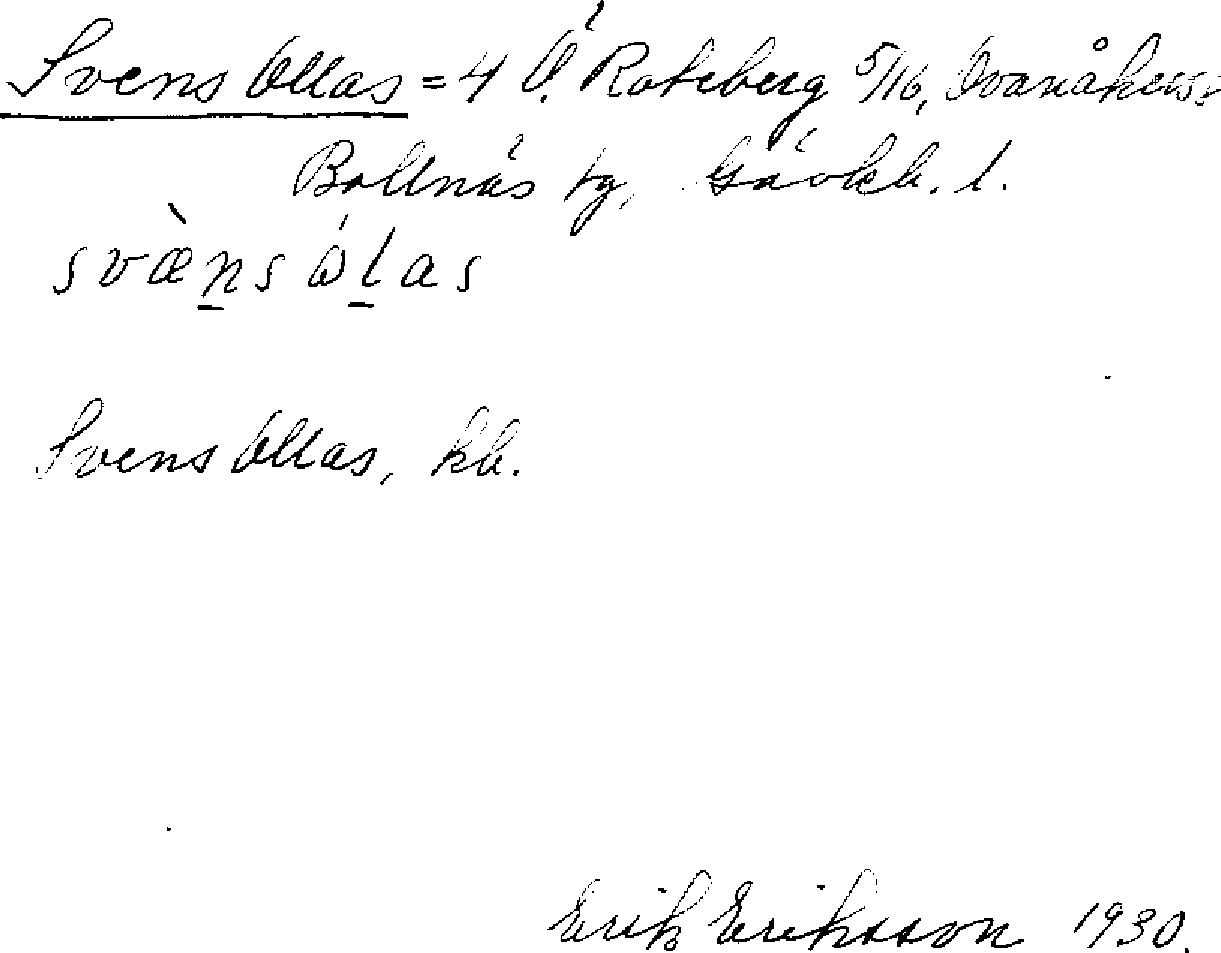 Svens Ollas = 4 Ö. Roteberg 5/16, Ovanåkers s
Bollnäs tg, Gävleb. l.
svæ̀ns ólas
Svens Ollas, kb.
Erik Eriksson 1930.